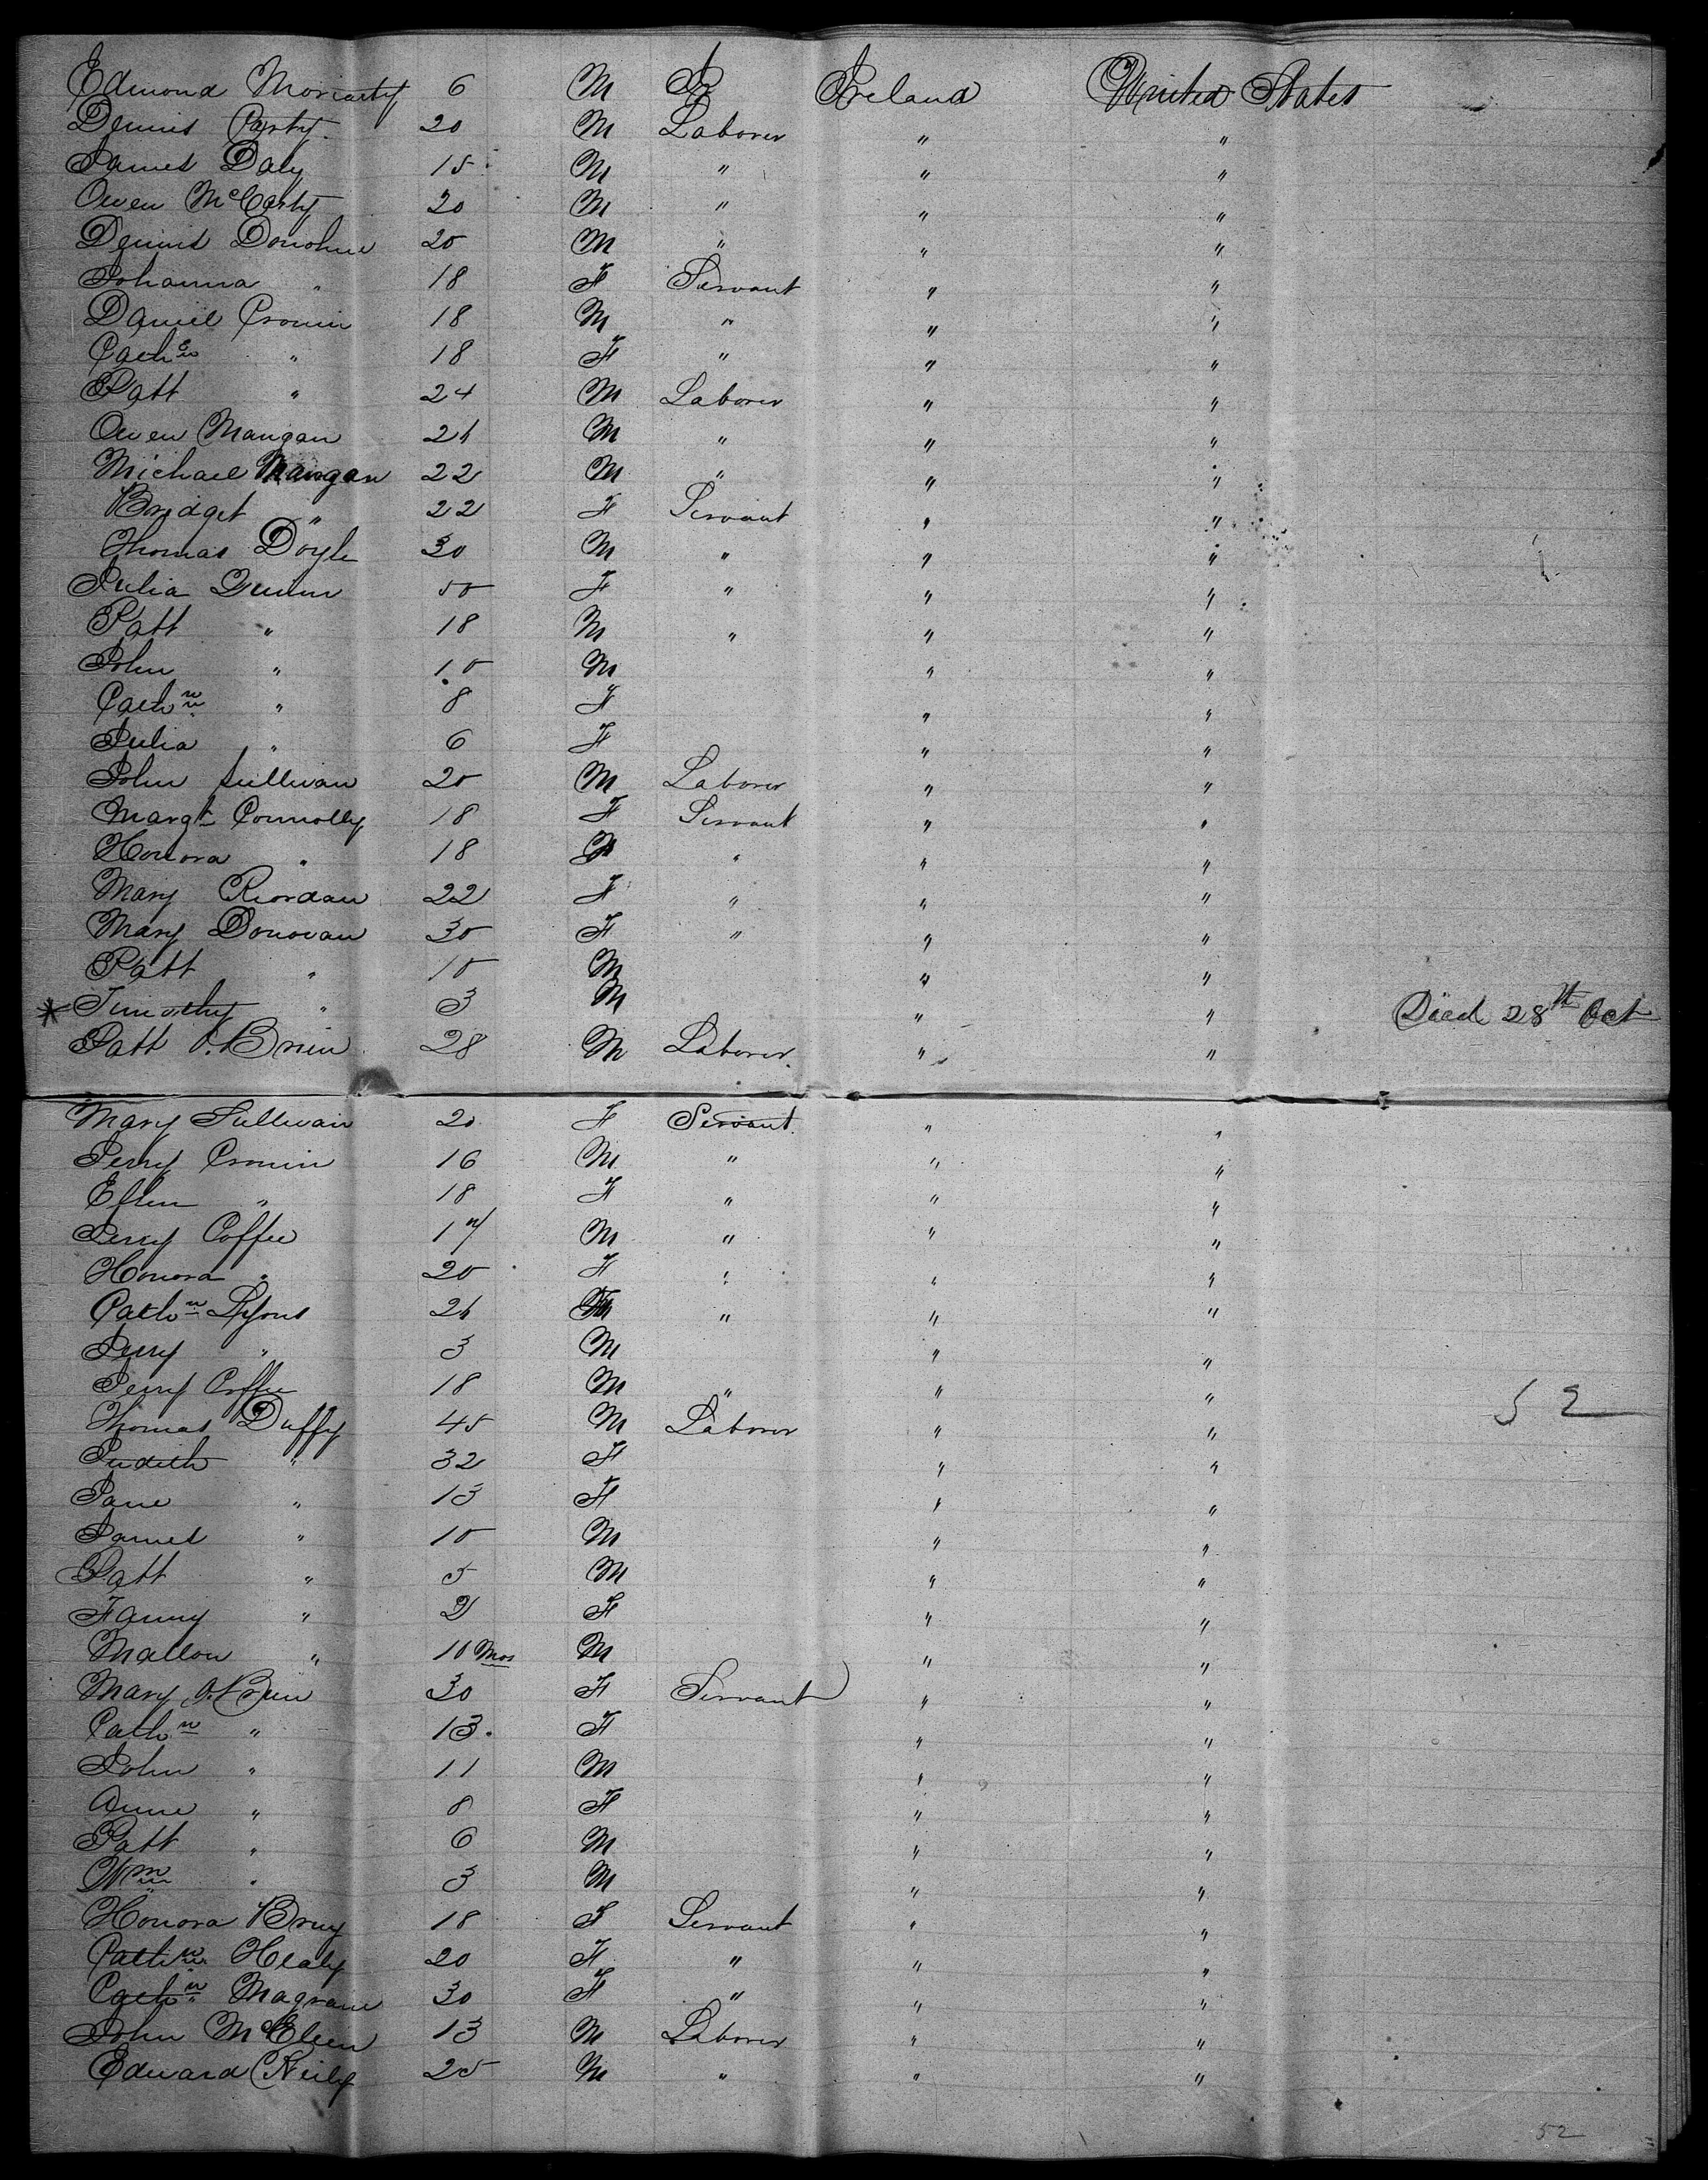 Edmond Moriarty 6 M Ireland United States
Dennis Carty 20 M Laborer " "
James Daly 15 M " " "
Owen McCarty 20 M " " "
Dennis Donohue 20 M " " "
Johanna " 18 F Servant " "
Daniel Cronin 18 M " " "
Cath " 18 F " " "
Patt " 24 M Laborer " "
Owen Mangan 26 M " " "
Michael Mangan 22 M " " "
Bridget " 22 F Servant " "
Thomas Doyle 30 M " " "
Julia Quinn 50 F " " "
Patt " 18 M " " "
John " 10 M " "
Cathn " 8 F " "
Julia " 6 F " "
John Sullivan 20 M Laborer " "
Margt Connolly 18 F Servant " "
Honora " 18 F " " "
Mary Riordan 22 F " " "
Mary Donovan 30 F " " "
Patt " 10 M " "
* Timothy " 3 M " " Died 28th Oct
Patt O.Brien 28 M Laborer " "
Mary Sullivan 20 F Servant " "
Jerry Cronin 16 M " " "
Ellen " 18 F " " "
Jerry Coffee 17 M " " "
Honora " 20 F " " "
Cathn Lyons 26 F " " "
Jerry " 3 M " "
Jerry Coffee 18 M " " "
52
Thomas Duffy 45 M Laborer " "
Judith " 32 F " "
Jane " 13 F " "
James " 10 M " "
Patt " 5 M " "
Fanny " 2 F " "
Mallon " 10 Mos M " "
Mary O.Brien 30 F Servant " "
Cathn " 13 F " "
John " 11 M " "
Anne " 8 F " "
Patt " 6 M " "
Wm " 3 M " "
Honora Bruy 18 F Servant " "
Cathn Healy 20 F " " "
Cathn Magrane 30 F " " "
John McEleen 13 M Laborer " "
Edward Reily 25 M " " "
52